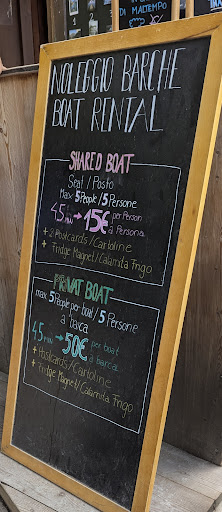 DI MALTEMPO
NOLEGGIO BARCHE
BOAT RENTAL
SHARED BOAT
Seat/Posto
Max 5 People/5 Persone
45 MIN → 15€ per Person
a Persona
+ 2 Postcards/Cartoline
+ Fridge Magnet/Calamita Frigo
PRIVAT BOAT
max 5 People per boat/5 Persone
a barca
45 MIN → 50€ per boat
a barca
+ Postcards/Cartoline
+ Fridge Magnet/Calamita Frigo